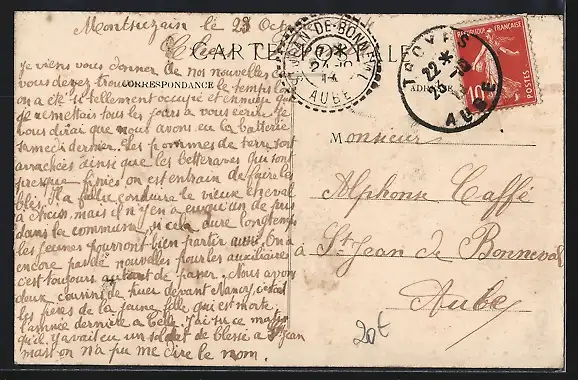 Montsuzain le 23 Oct
CARTE POSTALE
CORRESPONDANCE
ADRESSE
Je viens vous donner de nos nouvelles
vous devez trouver le temps long
on a été si tellement occupé et ennuyé que
je remettais tous les jours à vous écrire. Je
vous dirai que nous avons eu la batterie
samedi dernier. Les pommes de terre sont
arrachées ainsi que les betteraves qui sont
presque finies on est entrain de faire les
blés. Il a fallu conduire le vieux cheval
à Arcis, mais il n'y en a eu qu'un de pris
dans la commune, si cela dure longtemps
les jeunes pourront bien partir aussi. On a
encore pas de nouvelles pour les auxiliaires
c'est toujours autant de passer. Nous avons
deux cousins de tués devant Nancy, c'était
les frères de la jeune fille qui est morte
l'année dernière à Celle. J'ai su ce matin
qu'il y avait eu un soldat de blessé à St Jean
mais on n'a pu me dire le nom.
ST JEAN-DE-BONNEVAL
14
AUBE
TROYES
22 *
AUBE
RÉPUBLIQUE FRANÇAISE
10
POSTES
Monsieur
Alphonse Caffé
à St Jean de Bonneval
Aube
20t